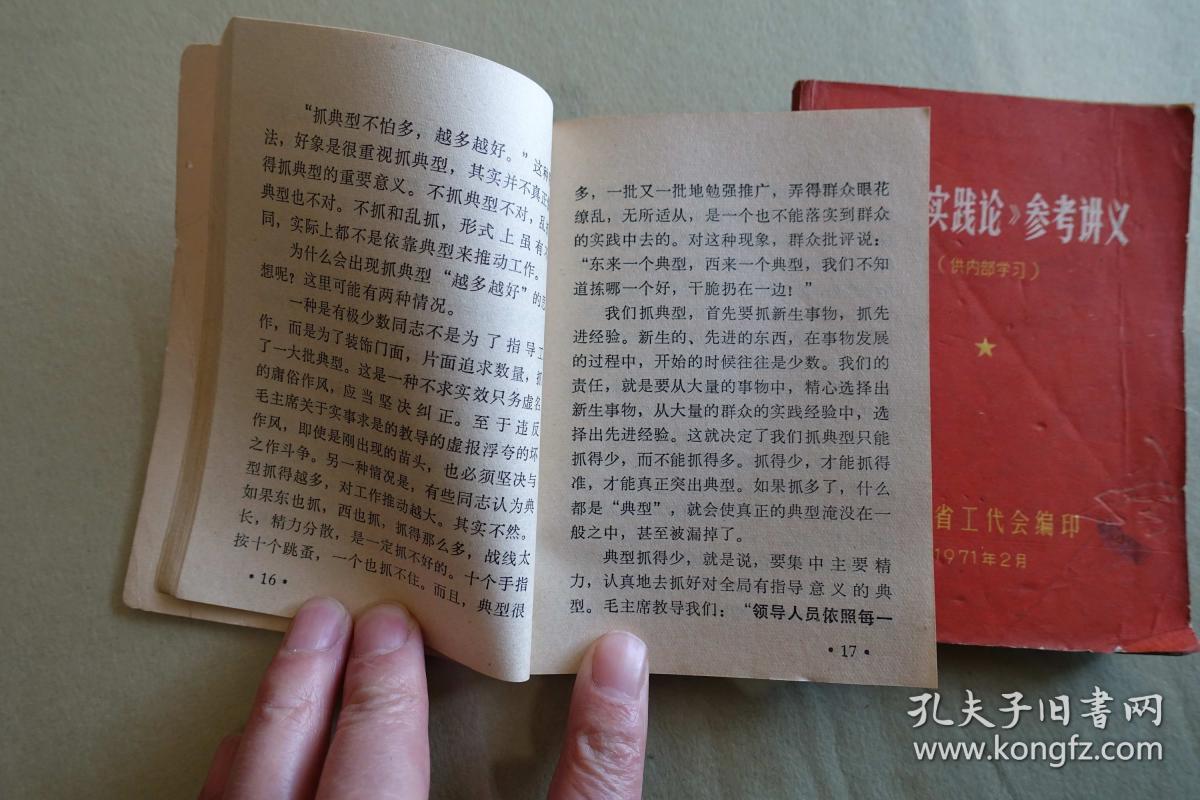 “抓典型不怕多，越多越好。”这种
法，好象是很重视抓典型，其实并不真正
得抓典型的重要意义。不抓典型不对，乱
典型也不对。不抓和乱抓，形式上虽有
同，实际上都不是依靠典型来推动工作。
为什么会出现抓典型“越多越好”的
想呢？这里可能有两种情况。
一种是有极少数同志不是为了指导工
作，而是为了装饰门面，片面追求数量，抓
了一大批典型。这是一种不求实效只务虚名
的庸俗作风，应当坚决纠正。至于违反
毛主席关于实事求是的教导的虚报浮夸的坏
作风，即使是刚出现的苗头，也必须坚决与
之作斗争。另一种情况是，有些同志认为典
型抓得越多，对工作推动越大。其实不然。
如果东也抓，西也抓，抓得那么多，战线太
长，精力分散，是一定抓不好的。十个手指
按十个跳蚤，一个也抓不住。而且，典型很
·16·
多，一批又一批地勉强推广，弄得群众眼花
缭乱，无所适从，是一个也不能落实到群众
的实践中去的。对这种现象，群众批评说：
“东来一个典型，西来一个典型，我们不知
道拣哪一个好，干脆扔在一边！”
我们抓典型，首先要抓新生事物，抓先
进经验。新生的、先进的东西，在事物发展
的过程中，开始的时候往往是少数。我们的
责任，就是要从大量的事物中，精心选择出
新生事物，从大量的群众的实践经验中，选
择出先进经验。这就决定了我们抓典型只能
抓得少，而不能抓得多。抓得少，才能抓得
准，才能真正突出典型。如果抓多了，什么
都是“典型”，就会使真正的典型淹没在一
般之中，甚至被漏掉了。
典型抓得少，就是说，要集中主要精
力，认真地去抓好对全局有指导意义的典
型。毛主席教导我们：“领导人员依照每一
·17·
实践论》参考讲义
（供内部学习）
省工代会编印
1971年2月
孔夫子旧书网
www.kongfz.com